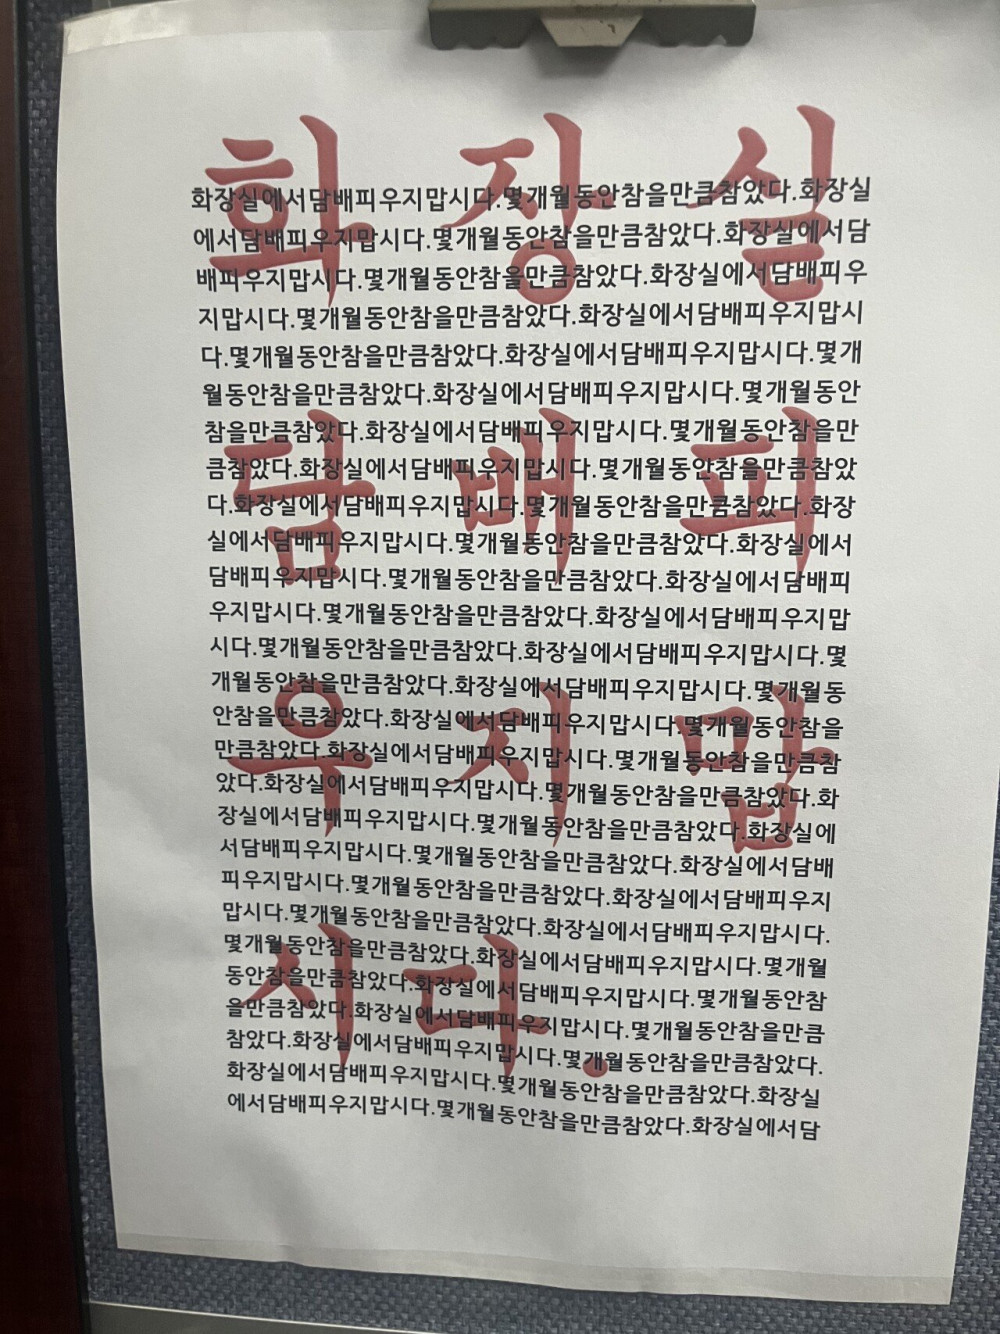 화장실
담배피
우지맙
시다.
화장실에서담배피우지맙시다.몇개월동안참을만큼참았다.화장실
에서담배피우지맙시다.몇개월동안참을만큼참았다.화장실에서담
배피우지맙시다.몇개월동안참을만큼참았다.화장실에서담배피우
지맙시다.몇개월동안참을만큼참았다.화장실에서담배피우지맙시
다.몇개월동안참을만큼참았다.화장실에서담배피우지맙시다.몇개
월동안참을만큼참았다.화장실에서담배피우지맙시다.몇개월동안
참을만큼참았다.화장실에서담배피우지맙시다.몇개월동안참을만
큼참았다.화장실에서담배피우지맙시다.몇개월동안참을만큼참았
다.화장실에서담배피우지맙시다.몇개월동안참을만큼참았다.화장
실에서담배피우지맙시다.몇개월동안참을만큼참았다.화장실에서
담배피우지맙시다.몇개월동안참을만큼참았다.화장실에서담배피
우지맙시다.몇개월동안참을만큼참았다.화장실에서담배피우지맙
시다.몇개월동안참을만큼참았다.화장실에서담배피우지맙시다.몇
개월동안참을만큼참았다.화장실에서담배피우지맙시다.몇개월동
안참을만큼참았다.화장실에서담배피우지맙시다.몇개월동안참을
만큼참았다.화장실에서담배피우지맙시다.몇개월동안참을만큼참
았다.화장실에서담배피우지맙시다.몇개월동안참을만큼참았다.화
장실에서담배피우지맙시다.몇개월동안참을만큼참았다.화장실에
서담배피우지맙시다.몇개월동안참을만큼참았다.화장실에서담배
피우지맙시다.몇개월동안참을만큼참았다.화장실에서담배피우지
맙시다.몇개월동안참을만큼참았다.화장실에서담배피우지맙시다.
몇개월동안참을만큼참았다.화장실에서담배피우지맙시다.몇개월
동안참을만큼참았다.화장실에서담배피우지맙시다.몇개월동안참
을만큼참았다.화장실에서담배피우지맙시다.몇개월동안참을만큼
참았다.화장실에서담배피우지맙시다.몇개월동안참을만큼참았다.
화장실에서담배피우지맙시다.몇개월동안참을만큼참았다.화장실
에서담배피우지맙시다.몇개월동안참을만큼참았다.화장실에서담